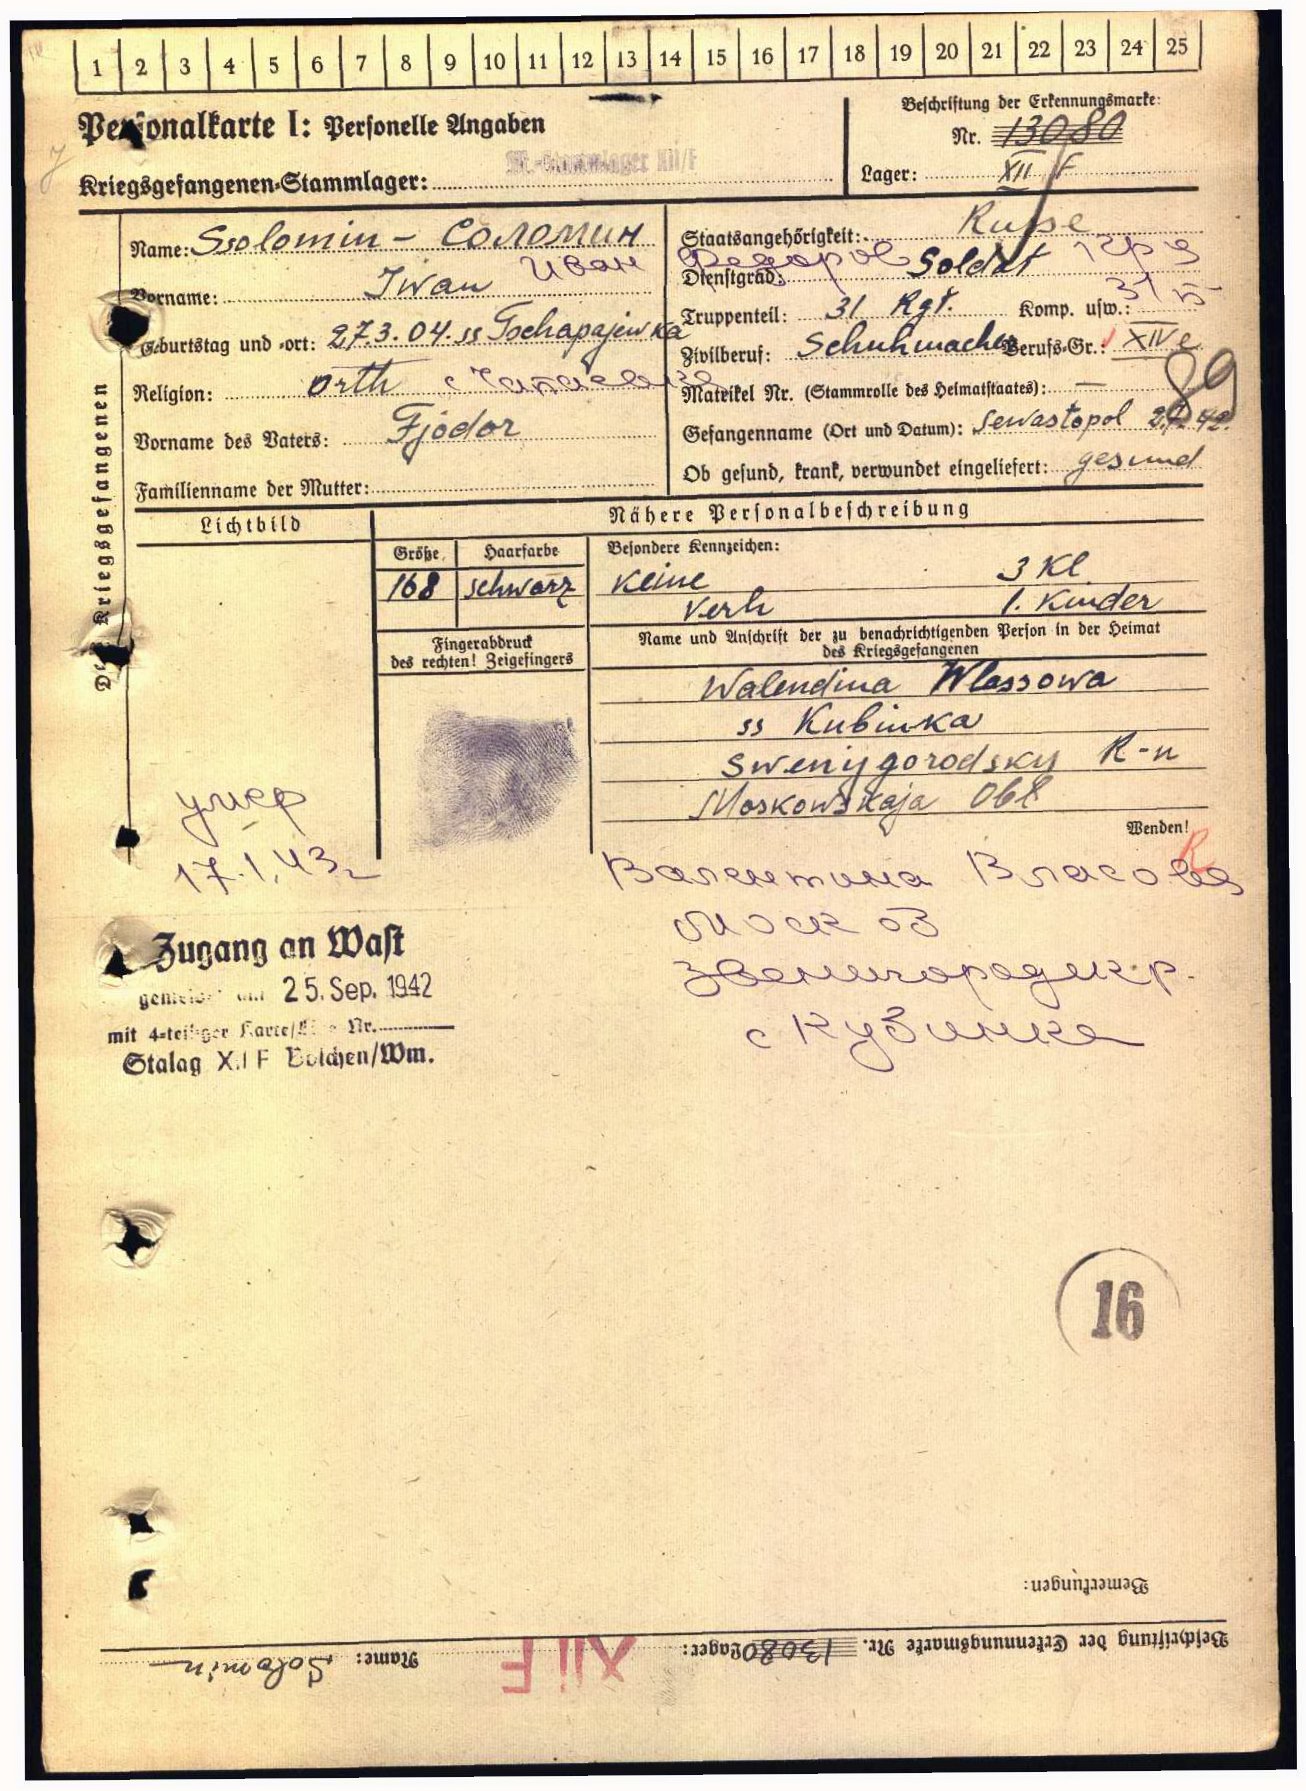 1 2 3 4 5 6 7 8 9 10 11 12 13 14 15 16 17 18 19 20 21 22 23 24 25
Personalkarte I: Personelle Angaben
Beschriftung der Erkennungsmarke:
Nr. 13080
M.-Stammlager XII/F
Kriegsgefangenen-Stammlager:
Lager: XII F
Des Kriegsgefangenen
Name: Ssolomin – Соломин
Staatsangehörigkeit: Russe
Иван Федоров
Vorname: Iwan
Dienstgrad: Soldat
Truppenteil: 31 Rgt. Komp. usw.:
31
Geburtstag und -ort: 27.3.04. ss Tschapajewka
Zivilberuf: Schuhmacher Berufs-Gr.: XIV e
Religion: orth с Чапаевка
Matrikel Nr. (Stammrolle des Heimatstaates): –
89
Vorname des Vaters: Fjodor
Gefangenname (Ort und Datum): Sewastopol 2.7.42.
Familienname der Mutter:
Ob gesund, krank, verwundet eingeliefert: gesund
Lichtbild
Nähere Personalbeschreibung
Größe Haarfarbe Besondere Kennzeichen:
168 schwarz keine 3 Kl
verh 1. Kinder
Fingerabdruck
des rechten! Zeigefingers
Name und Anschrift der zu benachrichtigenden Person in der Heimat
des Kriegsgefangenen
Walendina Wlassowa
ss Kubinka
Swenygorodsky R-n
Moskowskaja Obl
Wenden!
R
умер
17.1.43г
Валентина Власова
Моск об
Звенигородск. р.
с Кубинка
Zugang an Wast
gemeldet am 25. Sep. 1942
mit 4-teiliger Karte/Liste Nr.
Stalag XII F Bolchen/Wm.
16
Bemerkungen:
Beschriftung der Erkennungsmarke Nr. 13080 Lager: XII F Name: Solomin